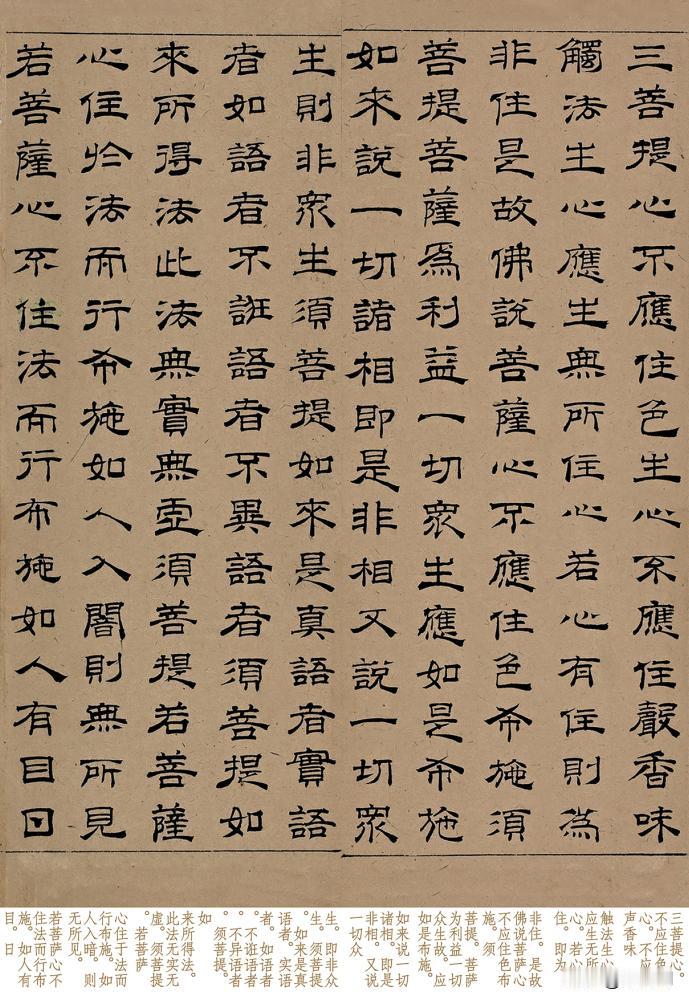 三菩提心不應住色生心不應住聲香味
觸法生心應生無所住心若心有住則為
非住是故佛說菩薩心不應住色布施須
菩提菩薩為利益一切眾生應如是布施
如來說一切諸相即是非相又說一切眾
生則非眾生須菩提如來是真語者實語
者如語者不誑語者不異語者須菩提如
來所得法此法無實無虛須菩提若菩薩
心住於法而行布施如人入闇則無所見
若菩薩心不住法而行布施如人有目日
三菩提心。
不应住色
心。不应
声香味
触法生心
应生无所
心。若心
住。即为
非住。是故
佛说菩萨心
不应住色布
施。须
菩提。菩萨
为利益一切
众生故。应
如是布施。
如来说一切
诸相。即是
非相。又说
一切众
生。即非众
生。须菩提
。如来是真
语者。实语
者。如语者
。不诳语者
。不异语者
。须菩提。
如
来所得法。
此法无实无
虚。须菩提
。若菩萨
心住于法而
行布施。如
人入暗。则
无所见。
若菩萨心不
住法而行布
施。如人有
目。日